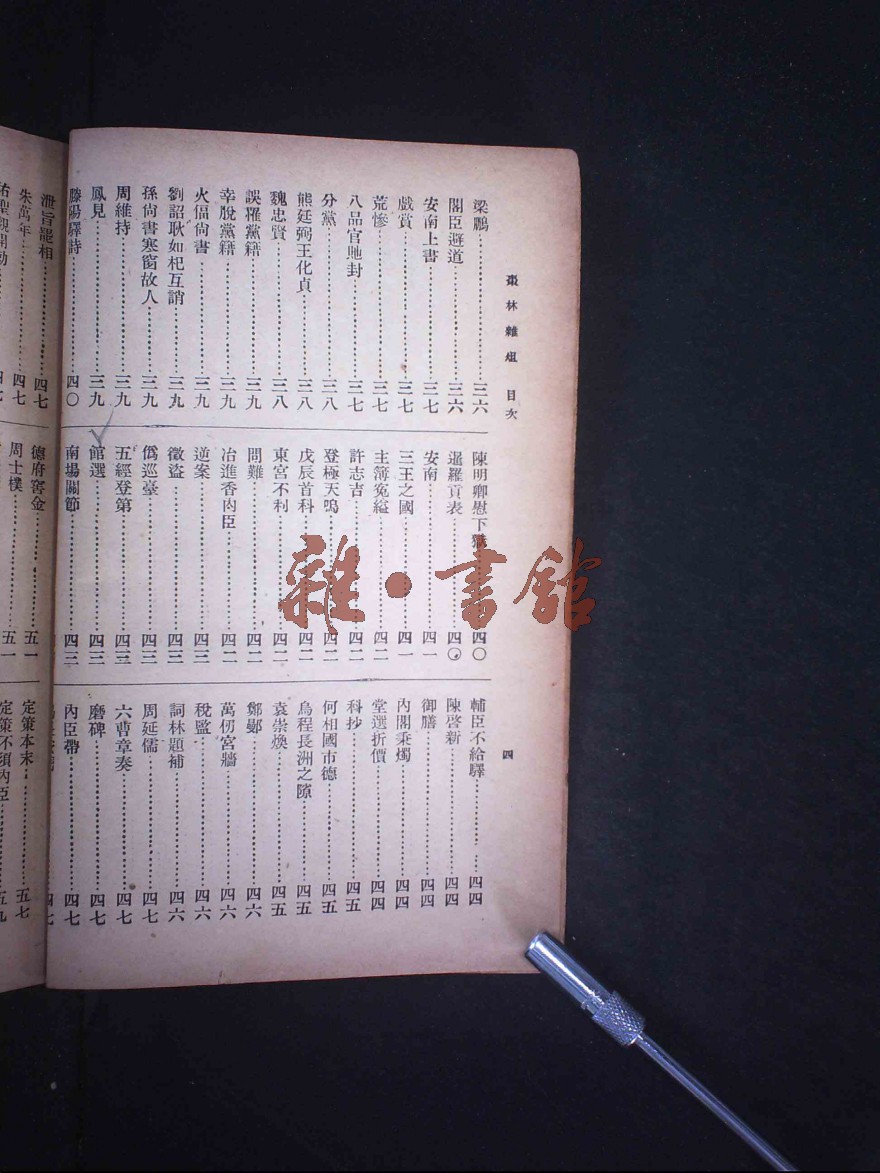 棗林雜俎 目次
四
梁鵬 三六
閣臣避道 三六
安南上書 三七
戲賞 三七
荒慘 三七
八品官貤封 三七
分黨 三八
熊廷弼王化貞 三八
魏忠賢 三八
誤罹黨籍 三九
幸脫黨籍 三九
火偪尙書 三九
劉詔耿如杞互誚 三九
孫尙書寒窗故人 三九
周維持 三九
鳳見 三九
滕陽驛詩 四〇
陳明卿慰下獄 四〇
暹羅貢表 四〇
安南 四一
三王之國 四一
主簿寃縊 四二
許志吉 四二
登極天鳴 四二
戊辰首科 四二
東宮不利 四二
問難 四二
冶進香內臣 四二
逆案 四三
徽盜 四三
僞巡臺 四三
五經登第 四三
館選 四三
南場關節 四三
輔臣不給驛 四四
陳啓新 四四
御膳 四四
內閣秉燭 四四
堂選折價 四四
科抄 四五
何相國市德 四五
烏程長洲之隙 四五
袁崇煥 四五
鄭鄤 四六
萬仞宮牆 四六
稅監 四六
詞林題補 四六
周延儒 四七
六曹章奏 四七
磨碑 四七
內臣帶 四七
四七
洩旨罷相 四七
朱萬年 四七
德府窖金 五一
周士樸 五一
定策本末 五七
定策不須內臣
雜·書館